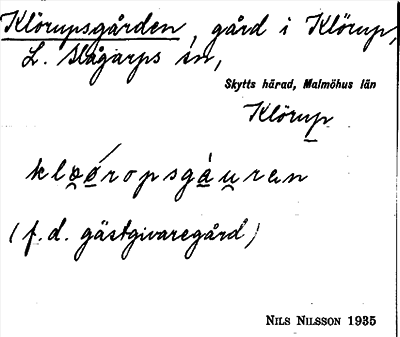 Klörupsgården, gård i Klörup,
L. Slågarps sn,
Skytts härad, Malmöhus län
Klörup
(f.d. gästgivaregård)
NILS NILSSON 1935